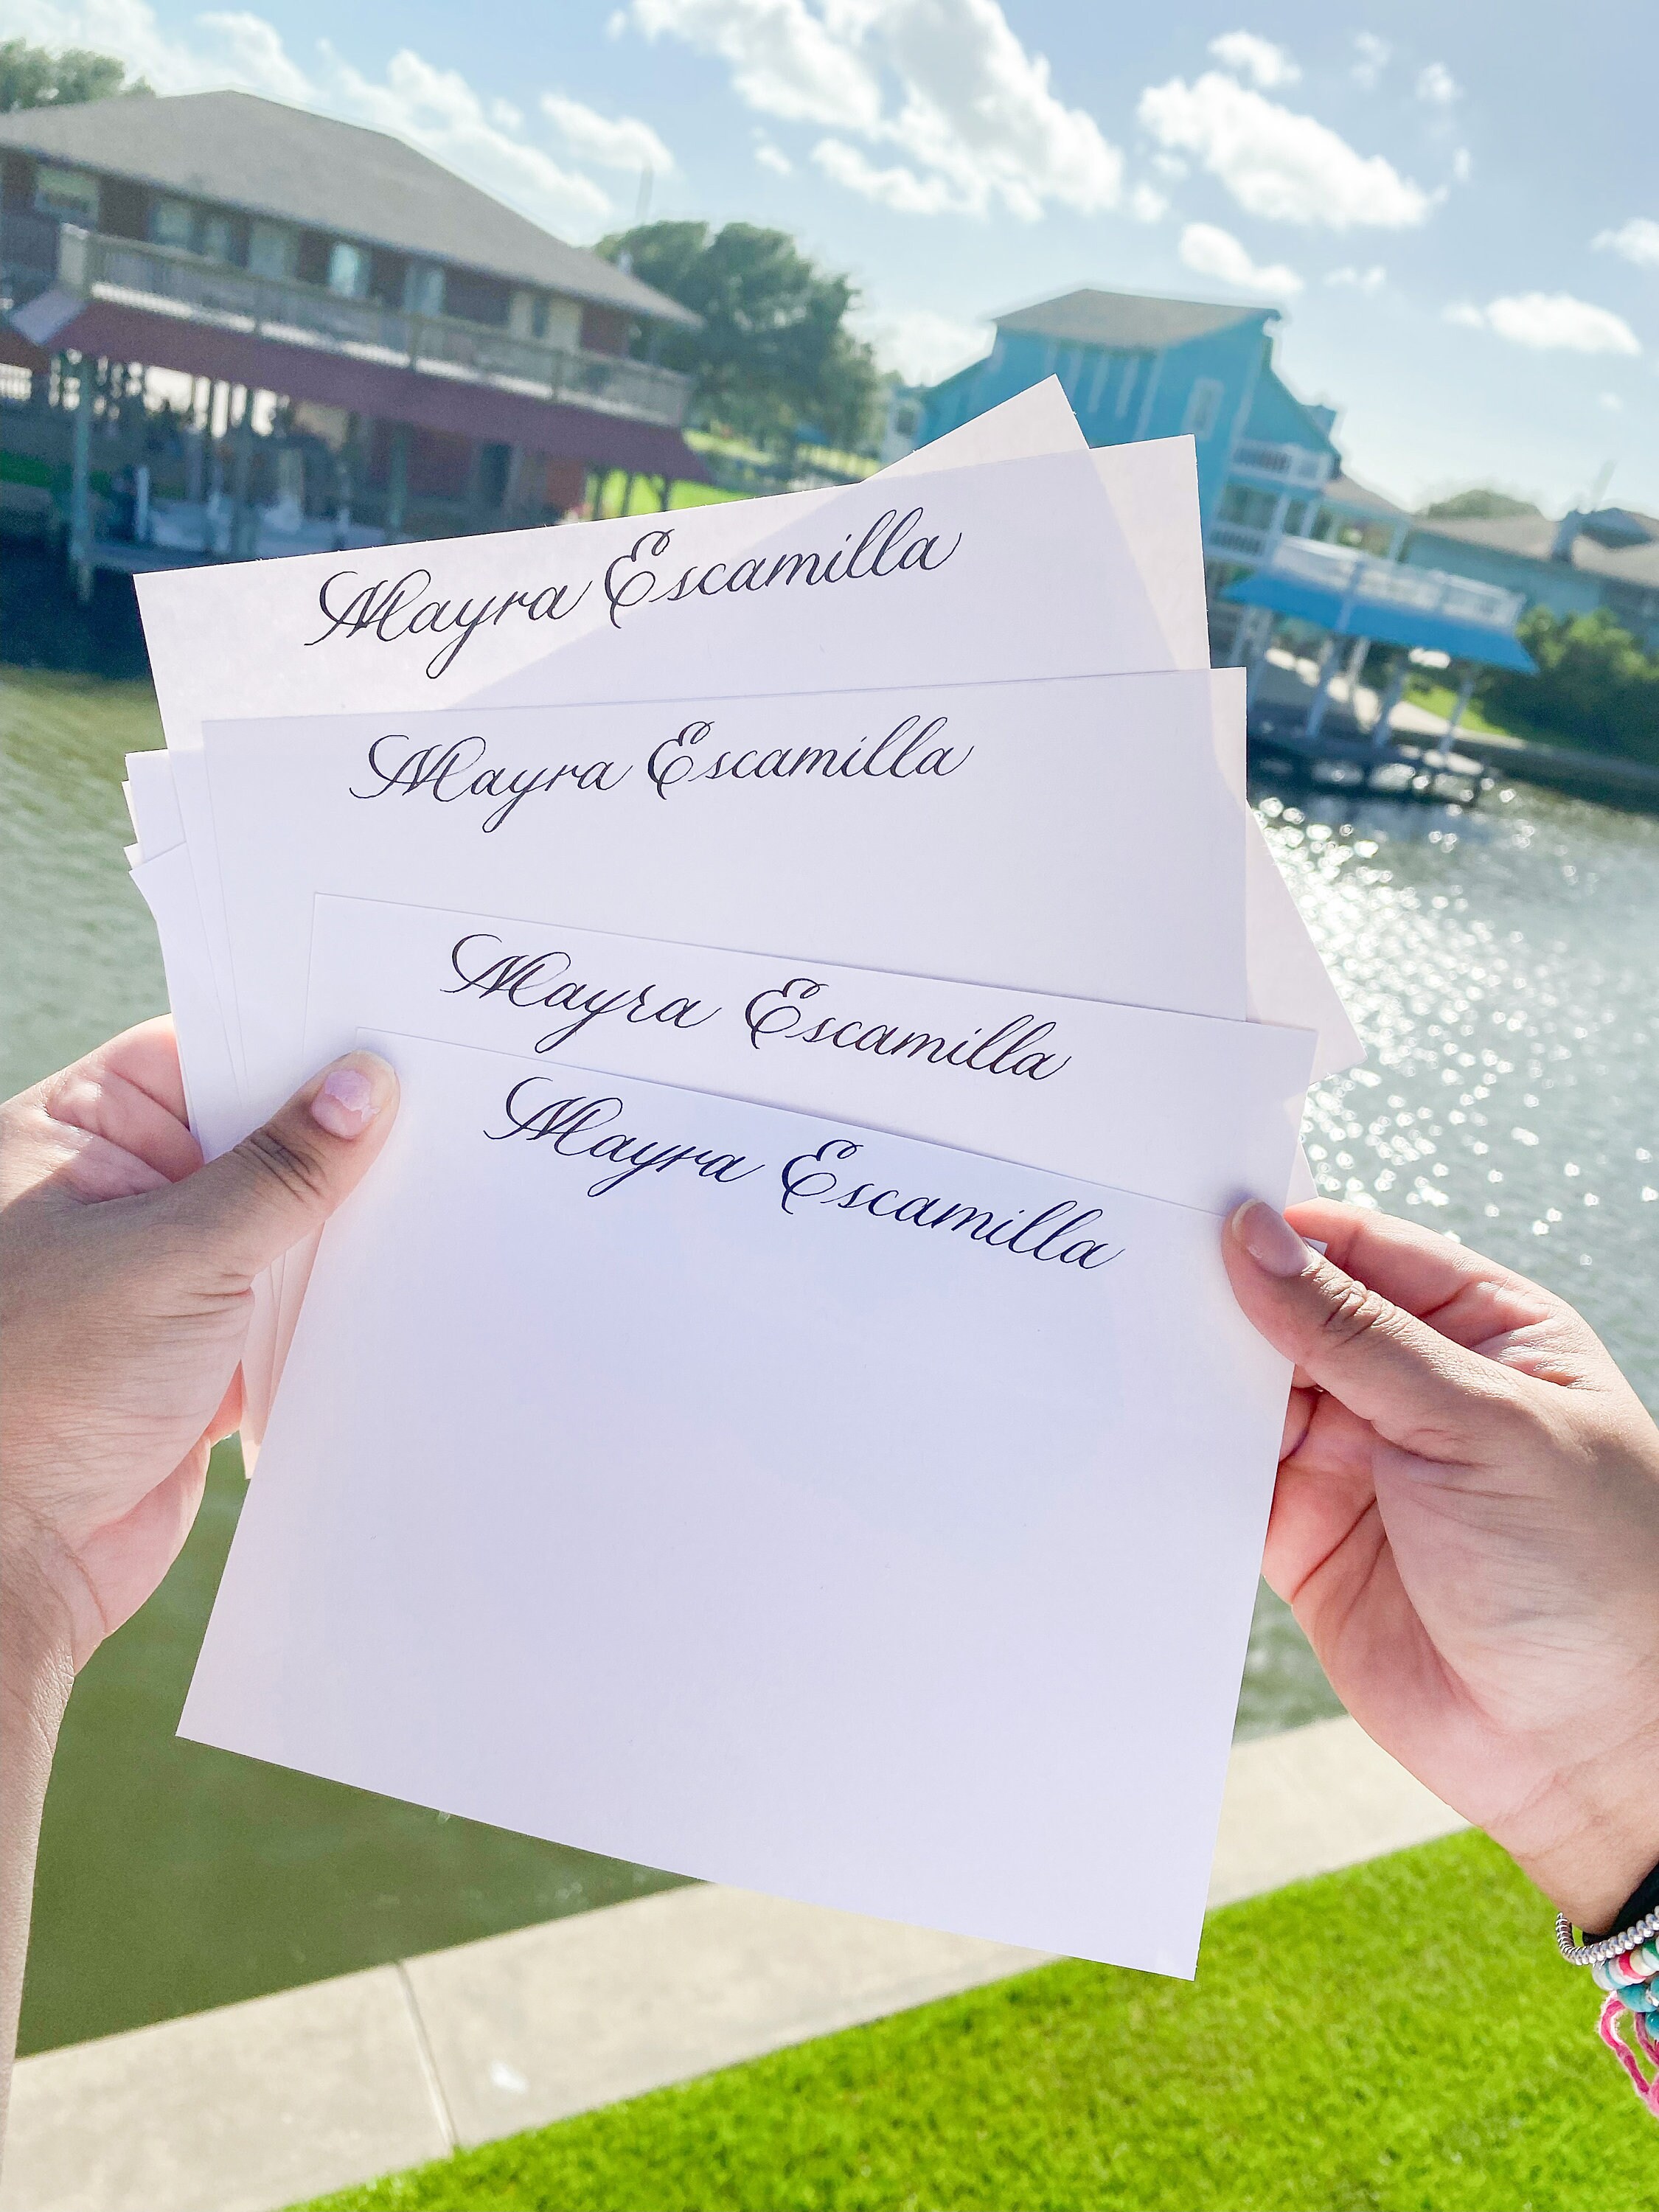 Mayra Escamilla
Mayra Escamilla
Mayra Escamilla
Mayra Escamilla